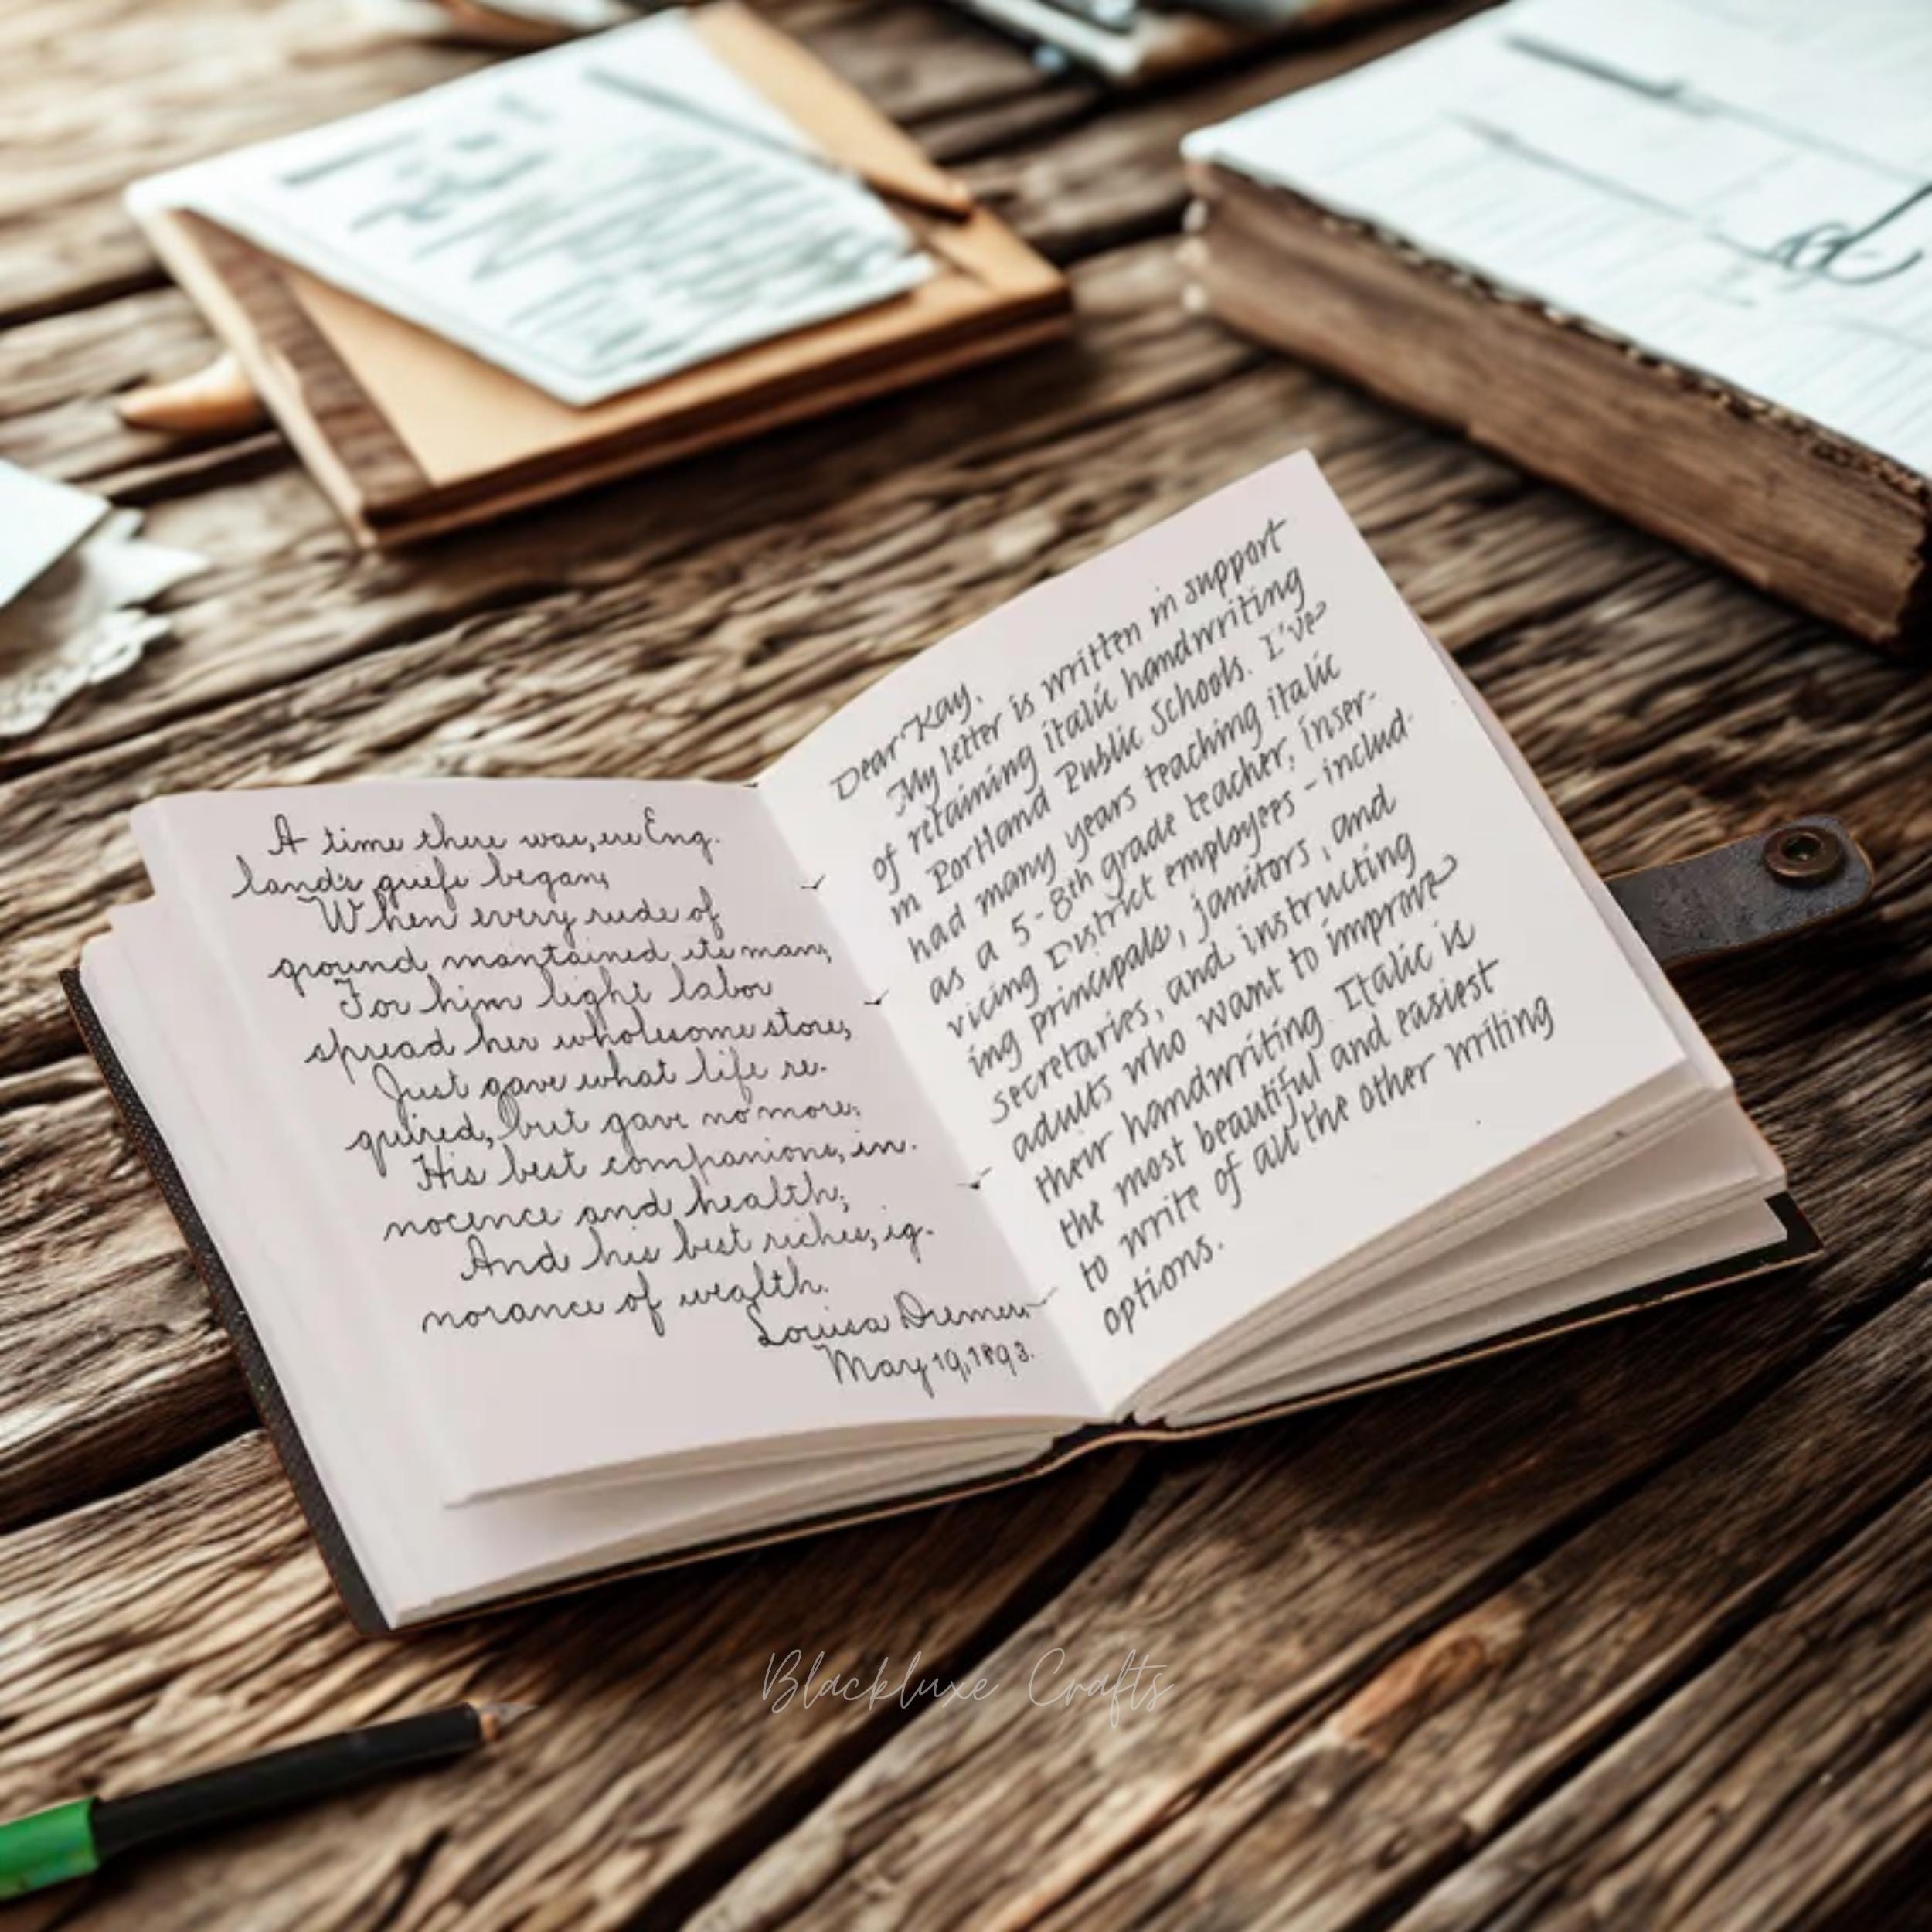 A time there was, ere Eng-
land's griefs began,
When every rude of
ground maintained its man;
For him light labor
spread her wholesome store,
Just gave what life re-
quired, but gave no more:
His best companions, in-
nocence and health;
And his best riches, ig-
norance of wealth.
Louisa
May 19, 1893.
Dear Kay,
My letter is written in support
of retaining italic handwriting
in Portland Public Schools. I've
had many years teaching italic
as a 5-8th grade teacher, inser-
vicing District employees - includ-
ing principals, janitors, and
secretaries, and instructing
adults who want to improve
their handwriting. Italic is
the most beautiful and easiest
to write of all the other writing
options.
Blackluxe Crafts